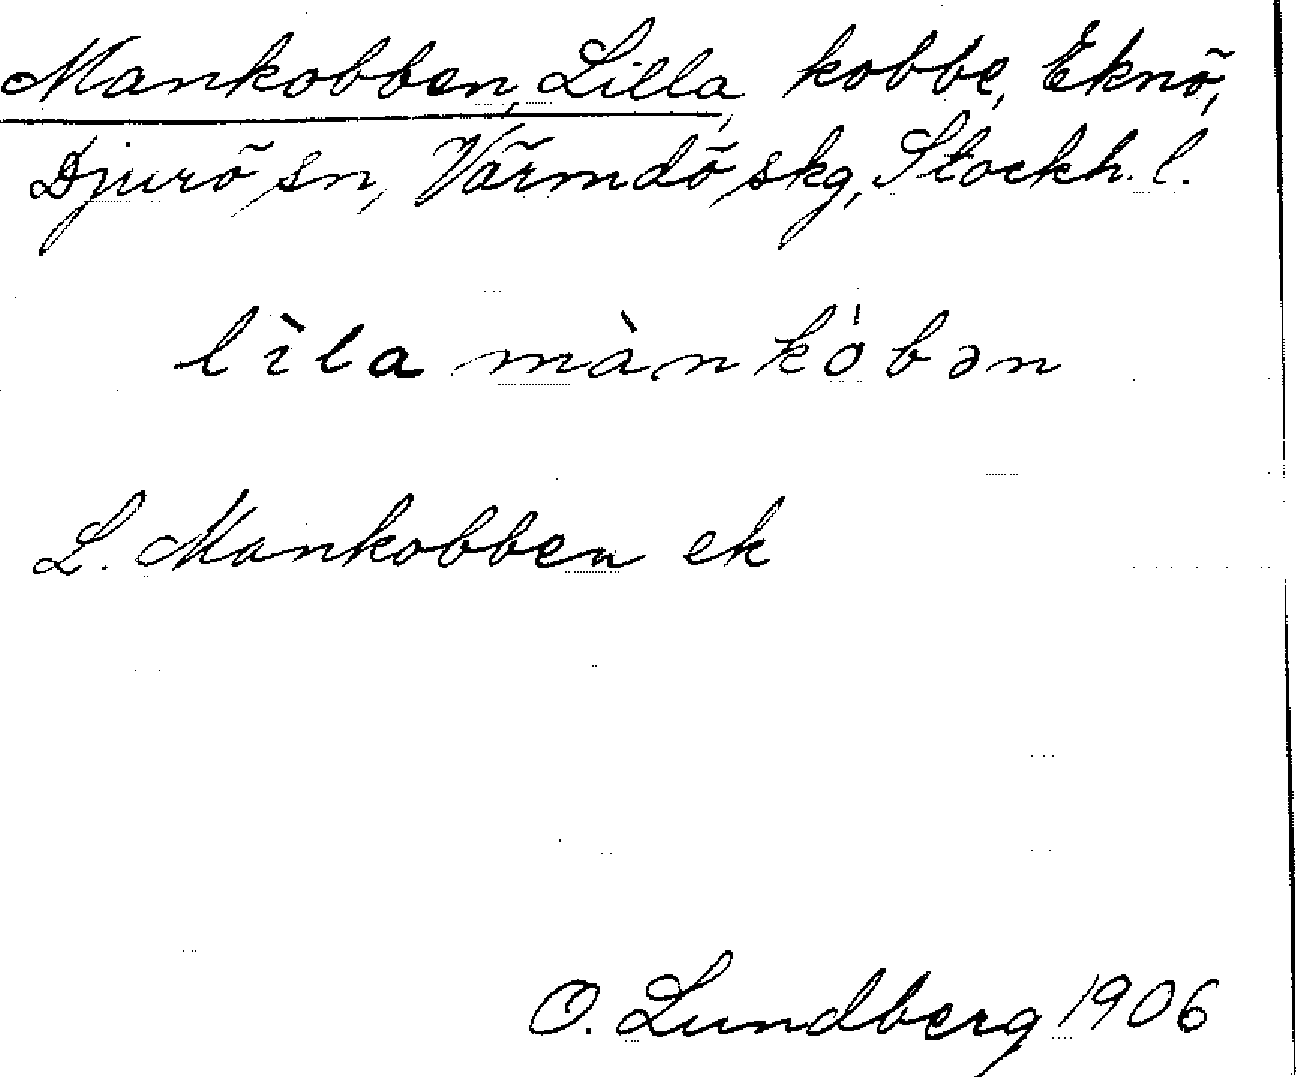 Mankobben, Lilla, kobbe, Eknö,
Djurö sn, Värmdö skg, Stockh. l.
lìla mànkȯ̍bən
L. Mankobben ek
O. Lundberg 1906